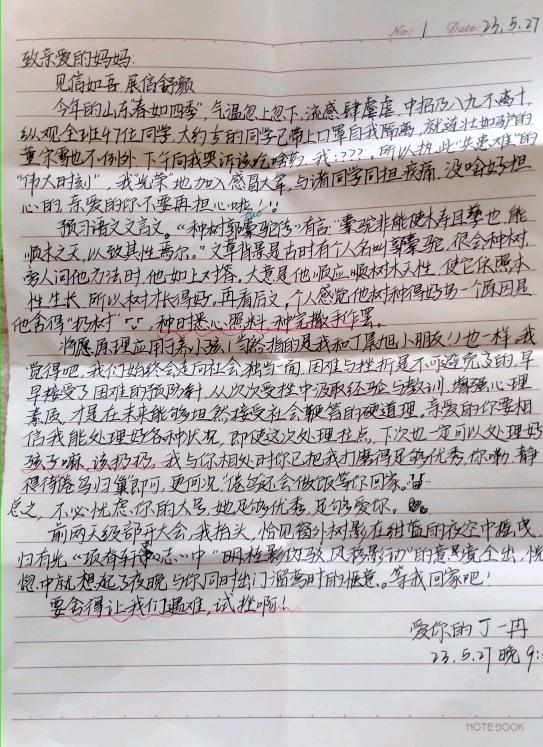 No: 1 Date: 23.5.27
致亲爱的妈妈:
见信如吾,展信舒颜
今年的山东“春如四季”,气温忽上忽下,流感肆虐,中招乃八九不离十,
纵观全班47位同学,大约的同学已带上口罩自我隔离,就连壮如的
董宗也不例外,下午同我哭诉该吃啥药,我:???,所以挑此“共患难”的
“伟大时刻”,我“光荣”地加入感冒大军,与诸同学同担疾痛,没啥好担
心的,亲爱的你不要再担心啦!!
预习语文文言文。《种树郭橐驼传》有言“橐驼非能使木寿且孳也,能
顺木之天,以致其性焉尔。”文章背景是古时有个人名叫郭橐驼,很会种树,
旁人问他方法时,他如上对答,大意是他顺应顺树木天性,使它依照本
性生长,所以树才长得好,再看后文,个人感觉他树种得好另一个原因是
他舍得“扔树”,种时悉心照料,种完撒手作罢。
将愿原理应用于养小孩(当然指的是我和丁晨旭小朋友!)也一样。我
觉得吧,我们始终会走向社会,独当一面,困难与挫折是不可避免了的,早
早接受了困难的预防针,从次次受挫中汲取经验与教训,增强心理
素质,才是在未来能够坦然接受社会鞭笞的硬道理,亲爱的你要相
信我能处理好各种状况,即使这次处理拉点,下次也一定可以处理好
孩子嘛,该扔扔,我与你相处时你已把我打磨得足够优秀,你嘞,静
得待倦鸟归巢即可,更何况“倦鸟”还会做饭等你回家。
总之,不必忧虑,你的大号,她足够优秀,足够爱你。
前两天级部开大会,我抬头,恰见窗外树影在绀蓝的夜空中摇曳,
归有光《项脊轩志》中“明月斑驳,风移影动”的意境全出,恍
惚中就想起了夜晚与你同时出门溜弯时的惬意。等我回家吧!
要舍得让我们遇难,试挫啊!
爱你的丁一冉
23.5.27 晚9:
NOTEBOOK